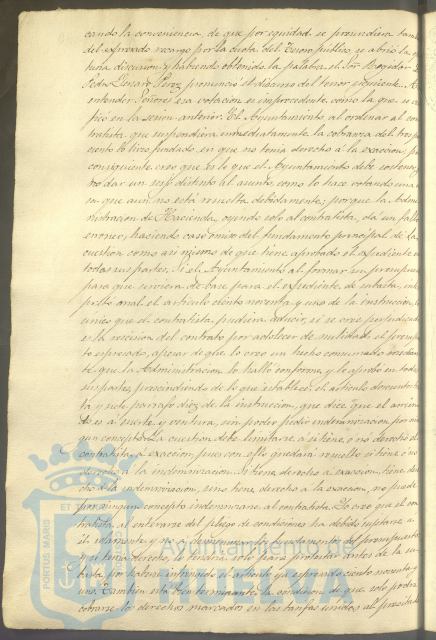 cando la conveniencia, de que por equidad se prescindiera tam
del expresado recargo por la cuota del Tesoro público, se abrió la
tuna discusion y habiendo obtenido la palabra el Sor. Regidor
Pedro Linares Perez pronunció el discurso del tenor siguiente. A
entender Señores esa votacion es improcedente como la que se
ficó en la sesion anterior. El Ayuntamiento al ordenar al con
tratista que suspendiera inmediatamente la cobranza del
fundado en que no tenia derecho á la exaccion, por
consiguiente creo que es lo que el Ayuntamiento debe sostener,
no dar un sesgo distinto al asunto, como lo hace votando una
sa que aun no está resuelta debidamente; porque la Admi
nistracion de Hacienda, oyendo solo al contratista, da un fallo
erroneo, haciendo caso omiso del fundamento principal de la
cuestion como asi mismo de que tiene aprobado el espediente en
todas sus partes. Si el Ayuntamiento al formar un presupues
para que sirviera de base para el espediente de subasta,
el articulo ciento noventa y uno de la instruccion, lo
unico que el contratista pudiera aducir, si se cree perjudicado
es la rescision del contrato por adolecer de nulidad el presupu
to espresado, apesar de que lo creo un hecho consumado,
te que la Administracion lo halló conforme y lo aprobó en todas
sus partes, prescindiendo de lo que establece el articulo doscientos
ta y siete parrafo diez de la instruccion, que dice que el arrien
do es á suerte y ventura, sin poder pedir indemnizacion por nin
gun concepto. La cuestion debe limitarse á si tiene, ó no derecho el
contratista á exaccion, pues con ello quedará resuelto si tiene ó no
derecho á la indemnizacion. Si tiene derecho a exaccion, tiene dere
cho á la indemnizacion, sino tiene derecho á la exaccion, no puede
por ningun concepto indemnizarse al contratista. Yo creo que el con
tratista al enterarse del pliego de condiciones ha debido sujetarse á
él solamente y no á desmenuzar los fundamentos del presupuesto
y si tenia derecho, lo tendria solo para protestar antes de la su
basta por haberse infringido el articulo ya espresado ciento noventa y
uno. Tambien está bien terminante la condicion de que solo podrá
cobrarse los derechos marcados en las tarifas unidas al presupuesto
Ayuntamiento de
PORTUS MARIS
ET TE